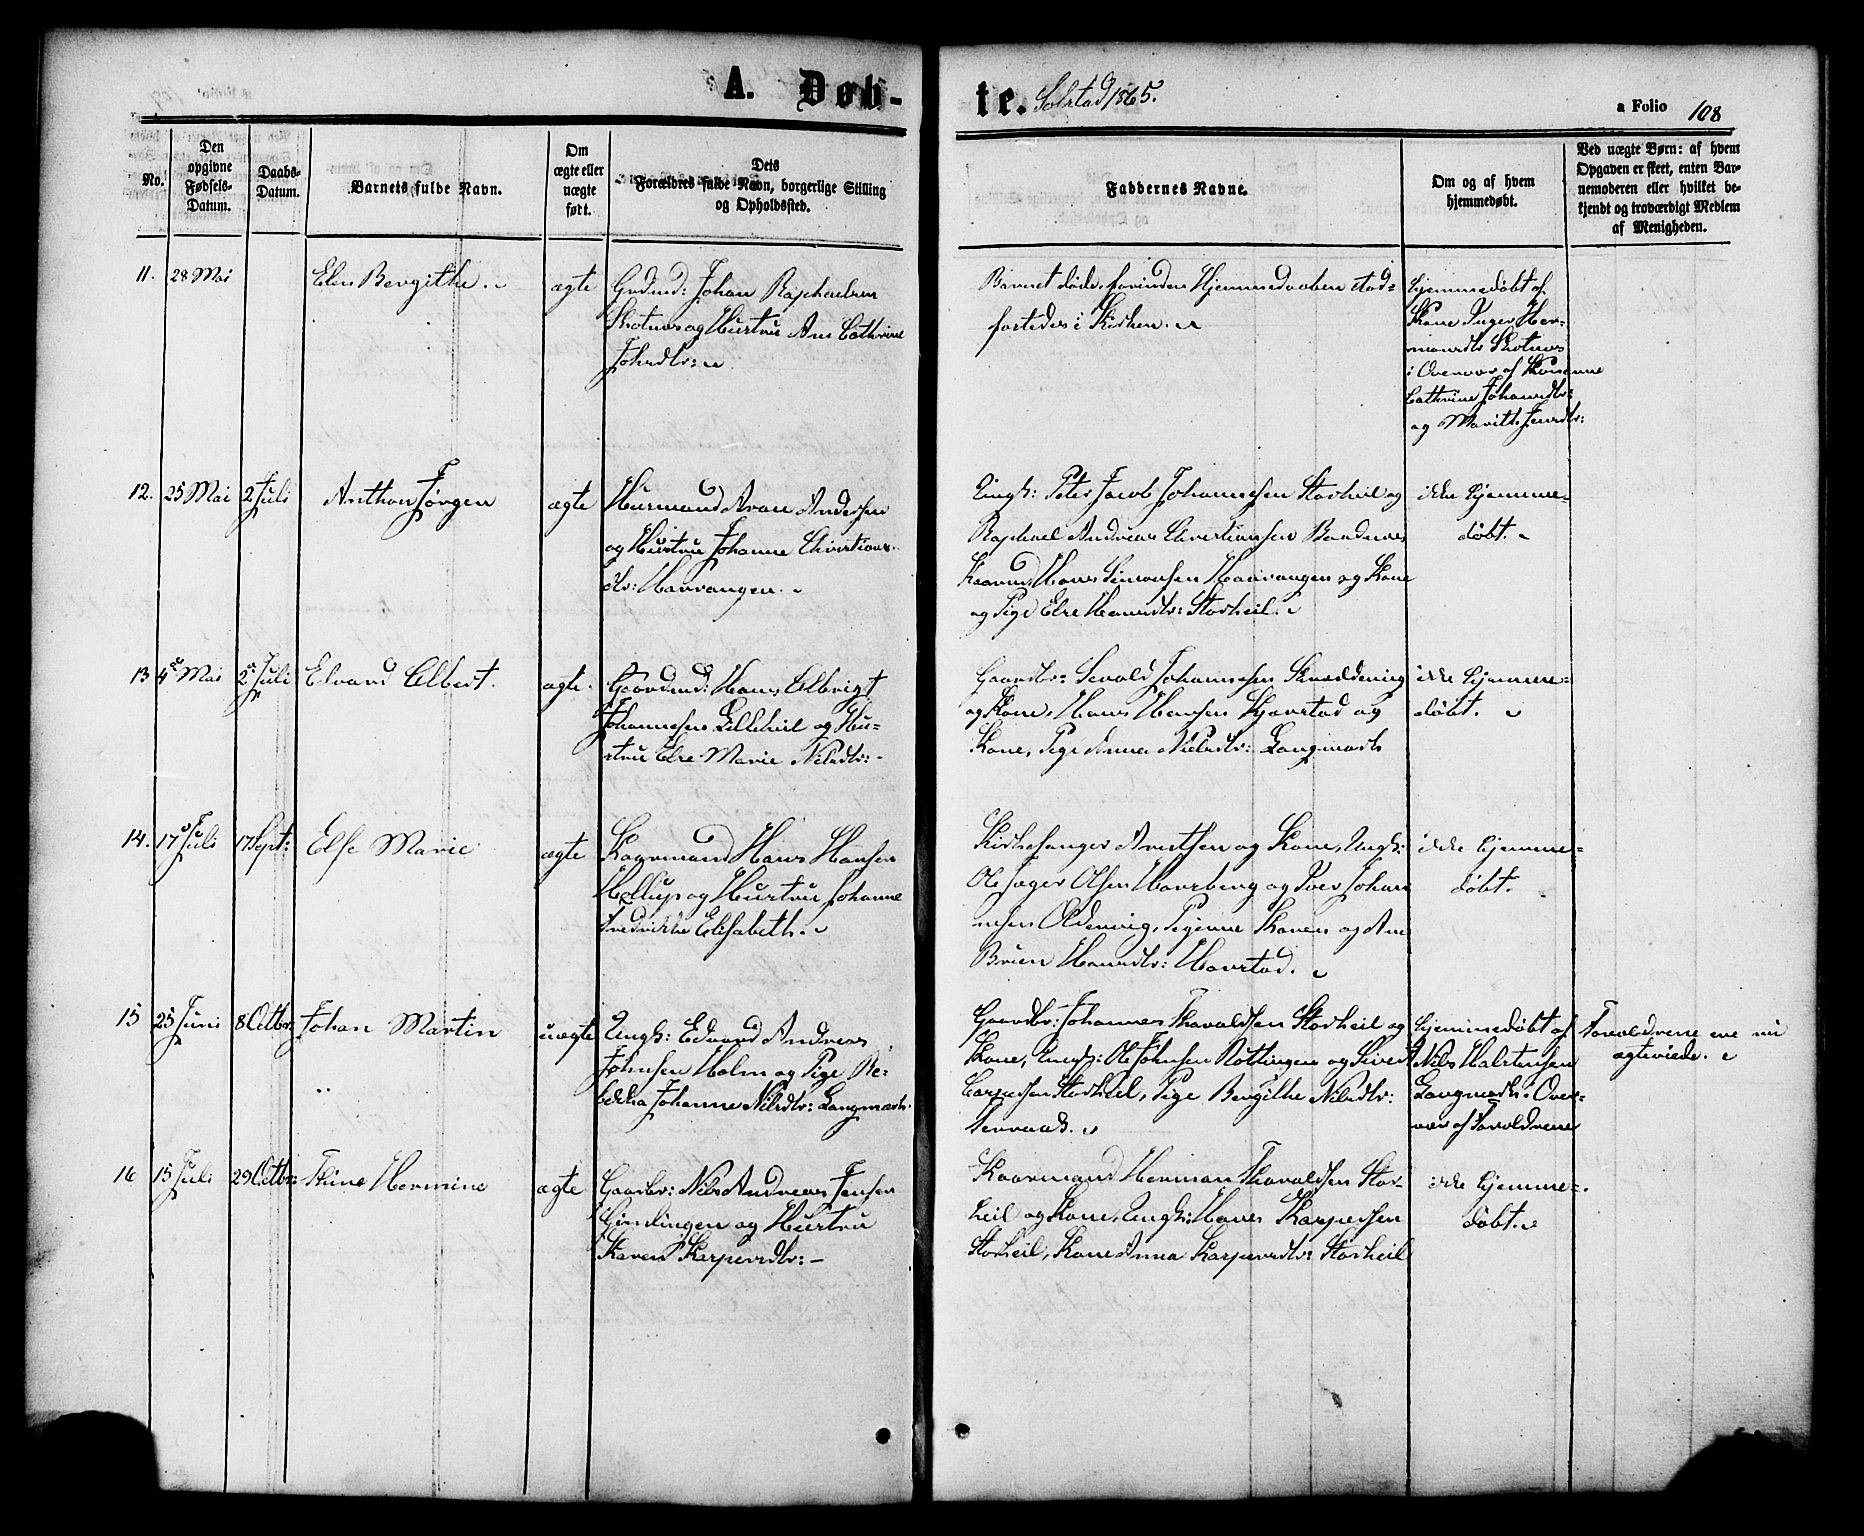 A. Døb-
te. Solstad 1865.
a Folio 108
No.
Den
opgivne
Fødsels-
Datum.
Daabs-
Datum.
Barnets fulde Navn.
Om
ægte eller
uægte
født.
Dets
Forældres fulde Navn, borgerlige Stilling
og Opholdssted.
Faddernes Navne.
Om og af hvem
hjemmedøbt.
Ved uægte Børn: af hvem
Opgaven er skeet, enten Bar-
nemoderen eller hvilket be-
kjendt og troværdigt Medlem
af Menigheden.
11. 28 Mai
Elen Bergithe.
ægte
Grdmd: Johan Raphaelsen
Skotnes og Hustru Ane Cathrine
Johsdtr:
Barnet døde, forinden Hjemmedaaben stad-
fæstedes i Kirken.
hjemmedøbt af
Kone Inger Her-
mansdtr Skotnes
i Overvær af Konerne
Cathrine Johansdtr:
og Marith Jensdtr:
12. 25 Mai 2 Juli
Anthon Jørgen
ægte
Huusmand Aron Andersen
og Hustru Johanne Christians-
dtr: Haarvangen.
Ungk: Peter Jacob Johannesen Storheil og
Raphael Andreas Christiansen
Hans Simonsen Haarvangen og Kone
og Pige Else Hansdtr: Storheil.
ikke hjemme-
døbt.
13 4de Mai 2den Juli
Edvard Albert.
ægte.
Gaardmd: Hans Albrigt
Johannesen Lilleheil og Hu-
stru Else Marie Nilsdtr:
Gaardbr: Sivald Johannesen
og Kone, Hans Hansen og
Kone, Pige Anna Nielsdtr: Langmark
ikke hjemme-
døbt.
14. 17de Juli 17 Sept:
Else Marie
ægte
Kaarmand Hans Hansen
Hollup og Hustru Johanne
Fredrikke Elisabeth.
Kirkesanger Arntsen og Kone, Ungk:
Ole Jæger Olsen Havsberg og Peer Johan
nesen Oldervig, Pigerne Karen og Ane
Hansdtr: Havstad.
ikke hjemme-
døbt.
15 25 Juni 8 Octbr:
Johan Martin
uægte
Ungk: Edvard Andreas
Johnsen Holm og Pige Re-
bekka Johanne Nilsdtr: Langmark.
Gaardbr: Johannes Tharaldsen Storheil og
Kone, Ungk: Ole Johnsen Røttingen og Sivert
Caspersen Storheil, Pige Bergithe Nilsdtr:
hjemmedøbt af
Nils Halstensen
Langmark i Over-
vær af Forældrene
Forældrene ere nu
ægteviede.
16 15 Juli 29 Octbr:
Thine Hermine
ægte
Gaardbr: Nils Andreas Jensen
Gimlingen og Hustru
Karen Kaspersdtr:
Kaarmand Herman Tharaldsen Stor-
heil og Kone, Ungk: Hans Kaspersen
Storheil, Kone Anna Kaspersdtr: Storheil
ikke hjemme-
døbt.